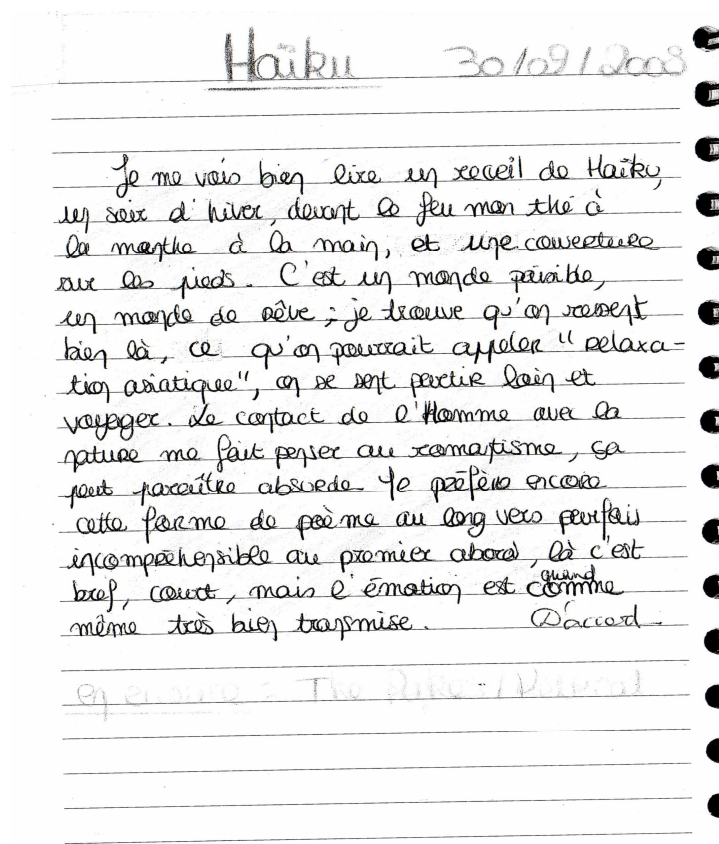 Haïku 30/09/2008
Je me vois bien lire un receil de Haïku,
un soir d'hiver, devant le feu mon thé à
la menthe à la main, et une couverture
sur les pieds. C'est un monde paisible,
un monde de rêve ; je trouve qu'on ressent
bien là, ce qu'on pourrait appeler "relaxa-
tion asiatique", on se sent partir loin et
voyager. Le contact de l'Homme avec la
nature me fait penser au romantisme, ça
peut paraître absurde. Je préfère encore
cette forme de poème au long vers parfois
incompréhensible au premier abord, là c'est
bref, court, mais l'émotion est quand comme
même très bien transmise. D'accord.
The